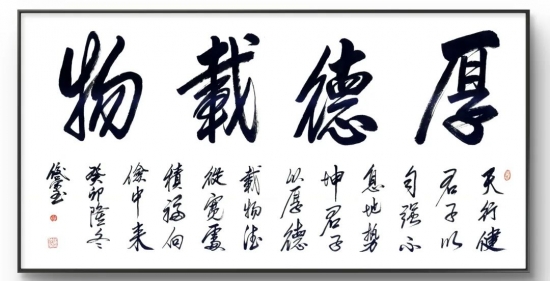 厚德載物
天行健
君子以
自强不
息地势
坤君子
以厚德
載物德
從寬處
積福向
儉中来
癸卯隆冬